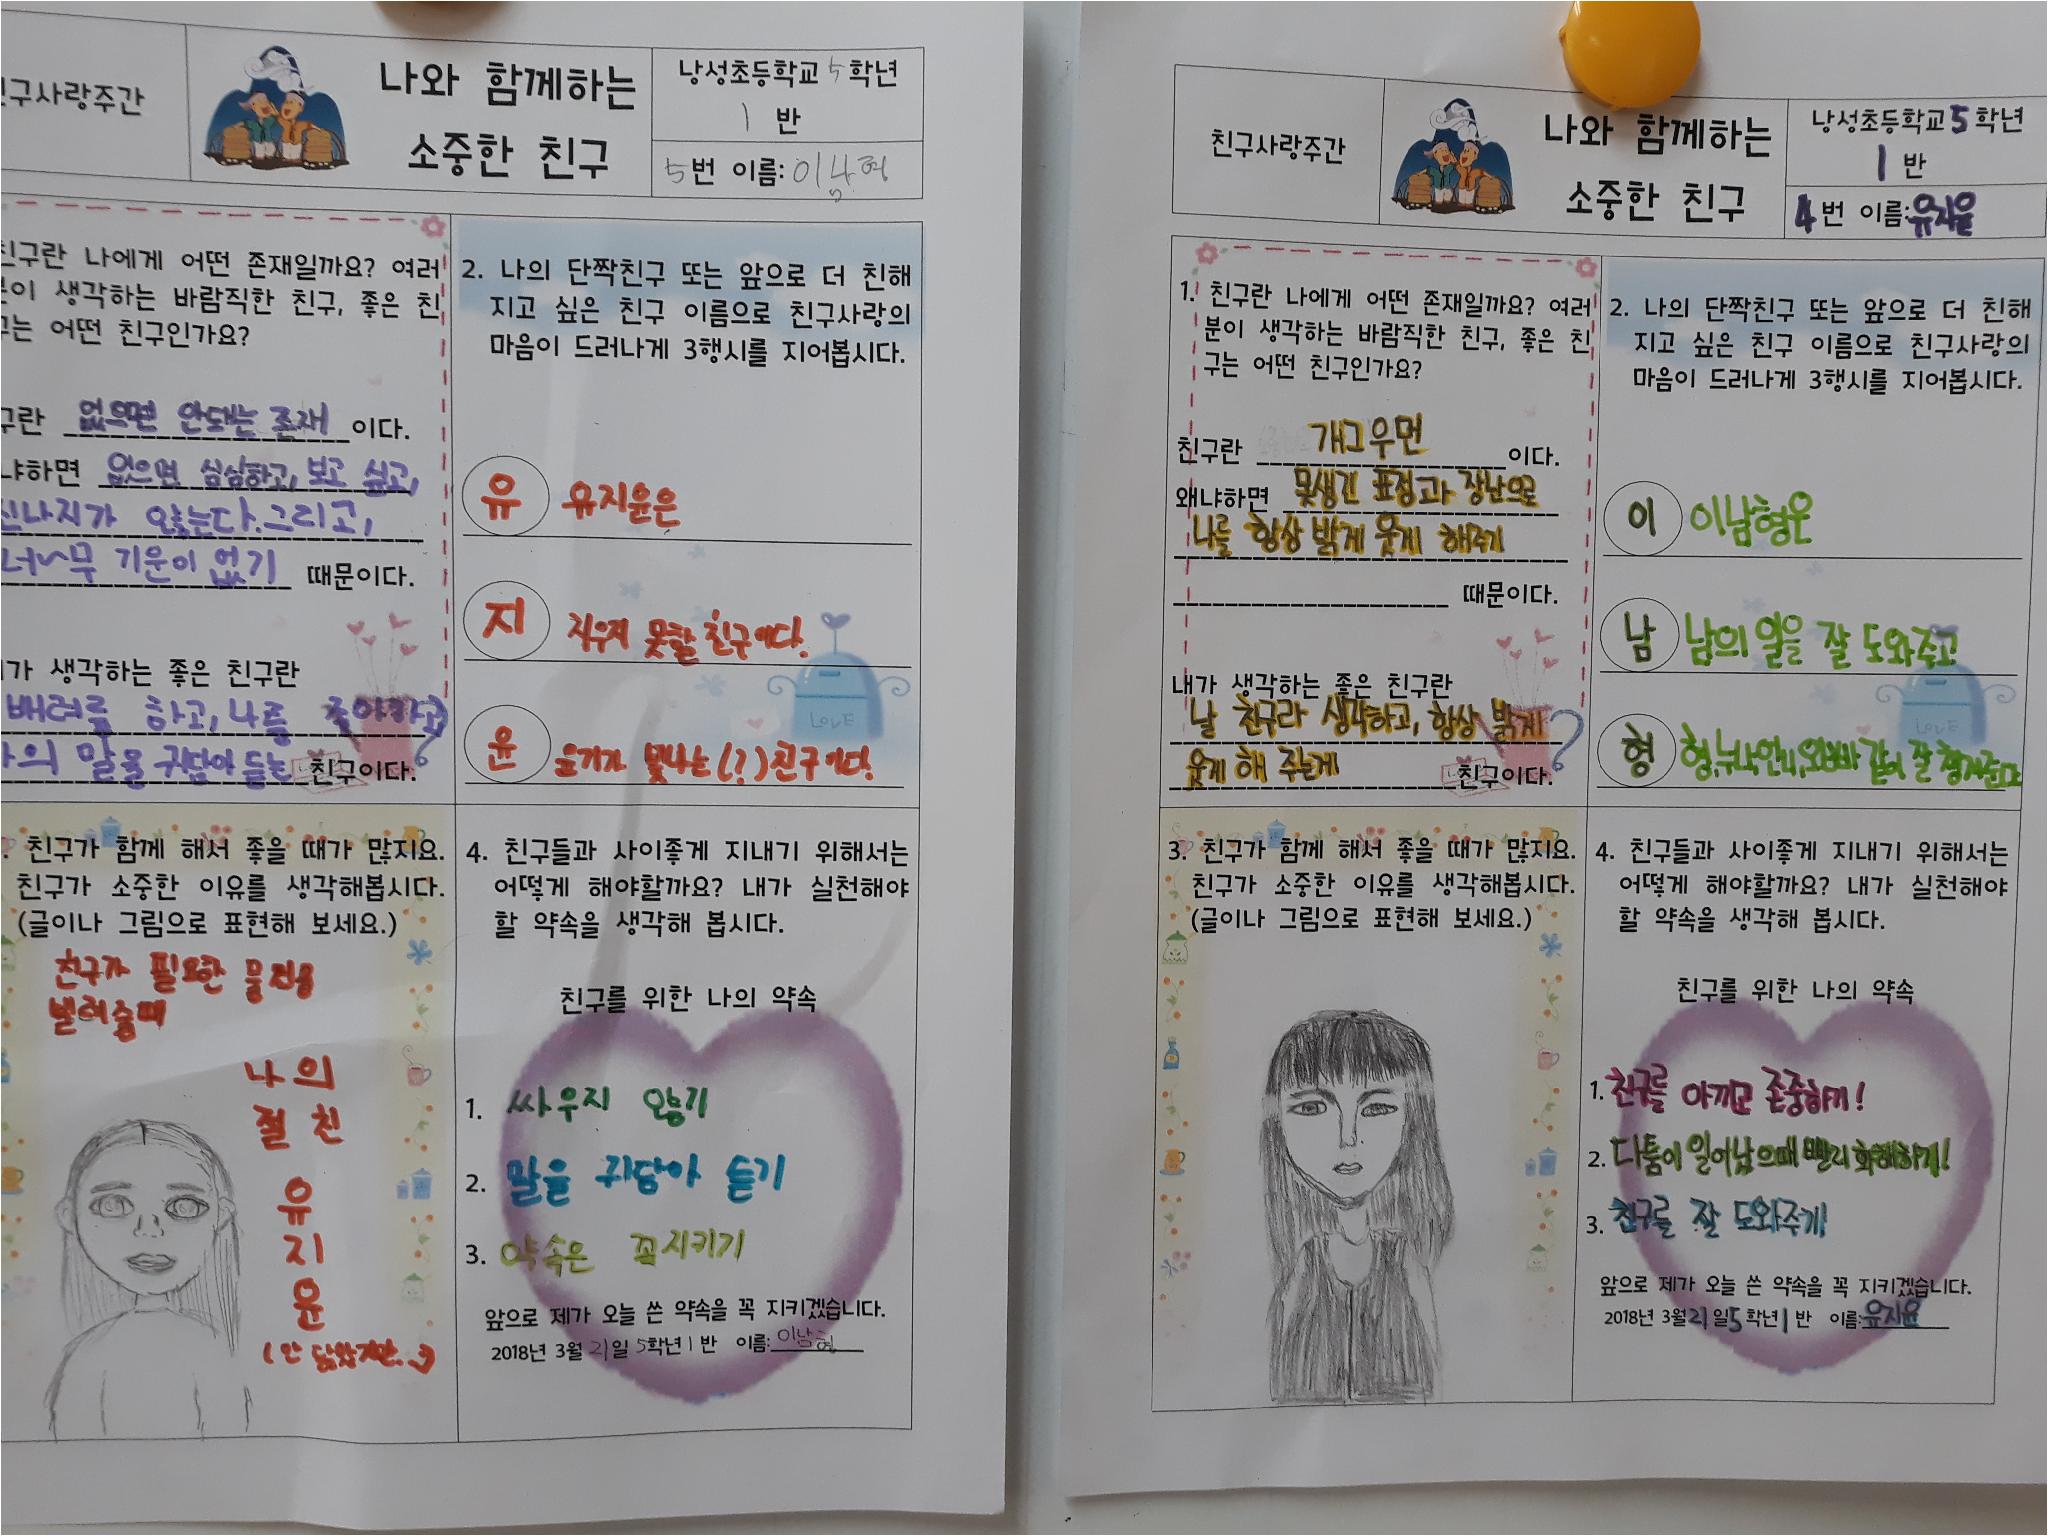 구사랑주간
나와 함께하는
소중한 친구
낭성초등학교 5학년
1 반
5번 이름: 이남형
친구란 나에게 어떤 존재일까요? 여러
분이 생각하는 바람직한 친구, 좋은 친
구는 어떤 친구인가요?
구란 없으면 안돼는 존재 이다.
냐하면 없으면 심심하고, 보고 싶고,
신나지가 않는다.그리고,
너~무 기운이 없기 때문이다.
가 생각하는 좋은 친구란
배려를 하고, 나를 좋아하고
나의 말을 귀담아 듣는 친구이다.
2. 나의 단짝친구 또는 앞으로 더 친해
지고 싶은 친구 이름으로 친구사랑의
마음이 드러나게 3행시를 지어봅시다.
유 유지윤은
지 지우지 못할 친구이다.
윤 윤기가 빛나는(?)친구이다!
. 친구가 함께 해서 좋을 때가 많지요.
친구가 소중한 이유를 생각해봅시다.
(글이나 그림으로 표현해 보세요.)
친구가 필요한 물건을
빌려줄때
나의
절친
유
지
윤
(안 닮았지만..)
4. 친구들과 사이좋게 지내기 위해서는
어떻게 해야할까요? 내가 실천해야
할 약속을 생각해 봅시다.
친구를 위한 나의 약속
1. 싸우지 않기
2. 말을 귀담아 듣기
3. 약속은 꼭지키기
앞으로 제가 오늘 쓴 약속을 꼭 지키겠습니다.
2018년 3월 21일 5학년 1 반 이름: 이남형
친구사랑주간
나와 함께하는
소중한 친구
낭성초등학교 5 학년
1 반
4 번 이름:유지윤
1. 친구란 나에게 어떤 존재일까요? 여러
분이 생각하는 바람직한 친구, 좋은 친
구는 어떤 친구인가요?
친구란 개그우먼 이다.
왜냐하면 못생긴 표정과 장난으로
나를 항상 밝게 웃게 해주기
때문이다.
내가 생각하는 좋은 친구란
날 친구라 생각하고, 항상 밝게
웃게 해 주는게 친구이다.
2. 나의 단짝친구 또는 앞으로 더 친해
지고 싶은 친구 이름으로 친구사랑의
마음이 드러나게 3행시를 지어봅시다.
이 이남형은
남 남의 일을 잘 도와주고
형 형,누나,언니,오빠 같이 잘 챙겨준다
3. 친구가 함께 해서 좋을 때가 많지요.
친구가 소중한 이유를 생각해봅시다.
(글이나 그림으로 표현해 보세요.)
4. 친구들과 사이좋게 지내기 위해서는
어떻게 해야할까요? 내가 실천해야
할 약속을 생각해 봅시다.
친구를 위한 나의 약속
1. 친구를 아끼고 존중하기!
2. 다툼이 일어났을때 빨리 화해하기!
3. 친구를 잘 도와주기!
앞으로 제가 오늘 쓴 약속을 꼭 지키겠습니다.
2018년 3월21일5학년1 반 이름:유지윤
LOVE
LOVE